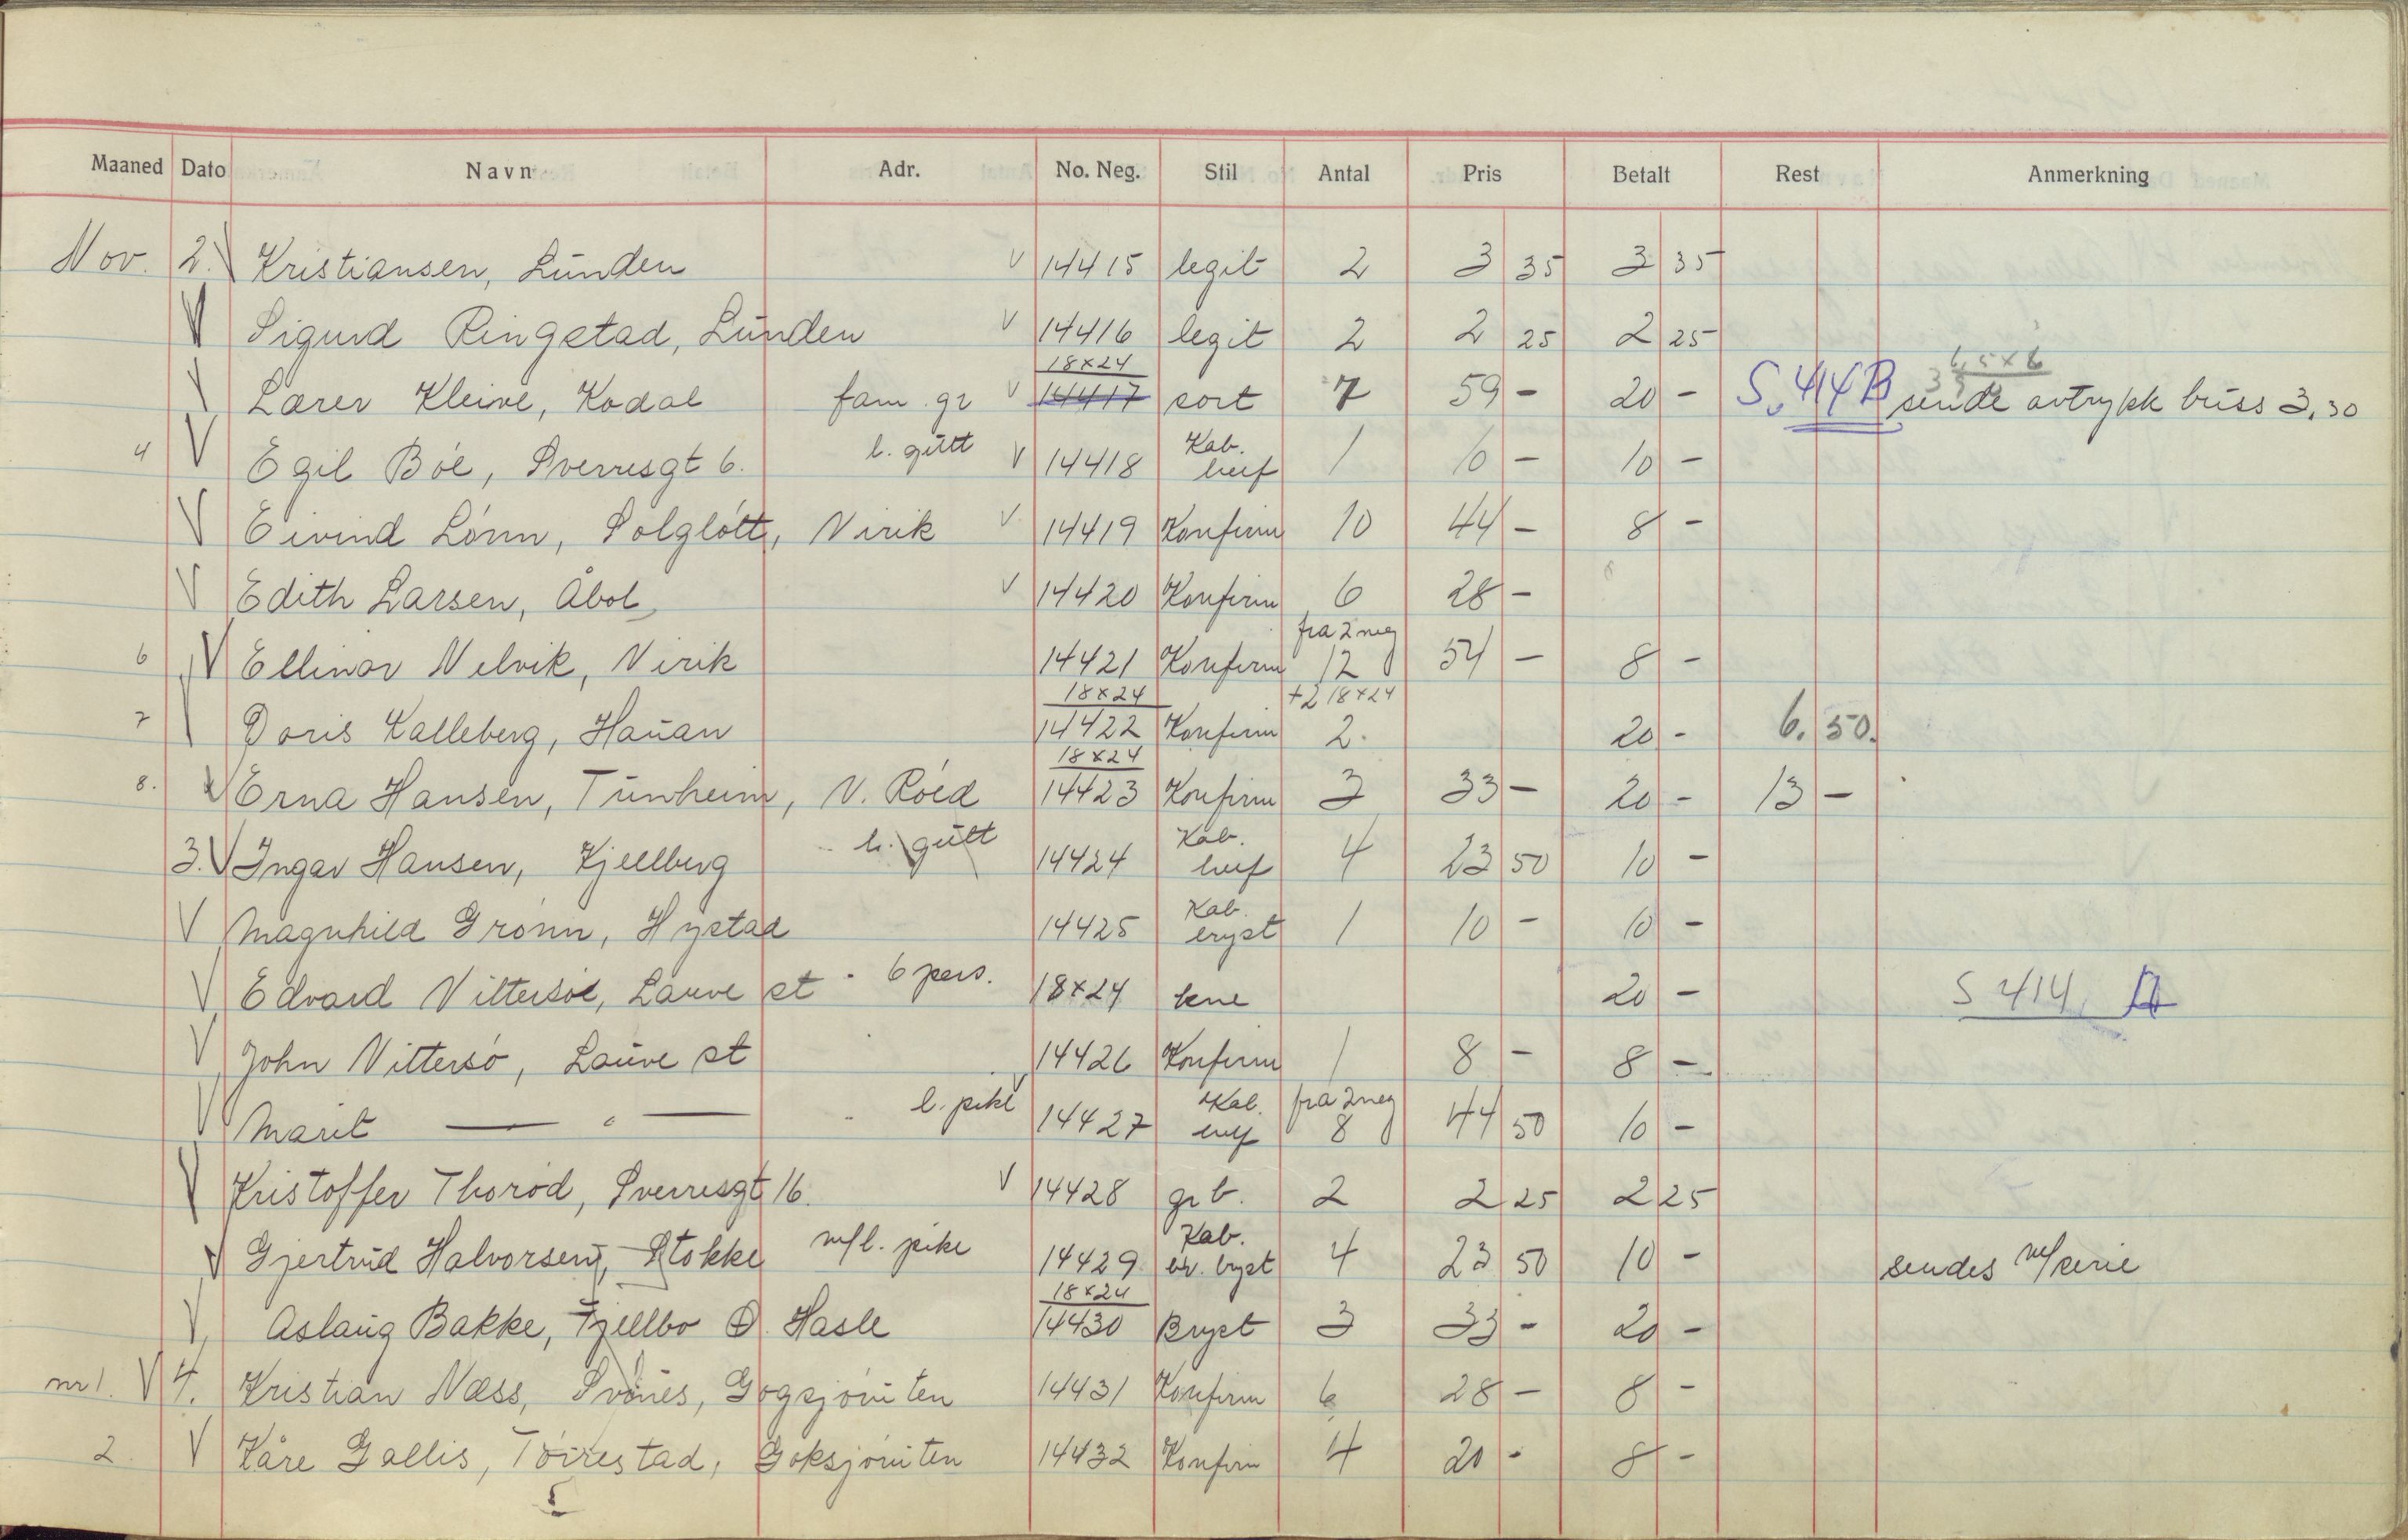 Maaned Dato Navn Adr. No. Neg. Stil Antal Pris Betalt Rest Anmerkning
Nov. 2. Kristiansen, Lunden V 14415 legit 2 3 35 3 35
V Sigurd Ringstad, Lunden V 14416 legit 2 2 25 2 25
18×24 6,5×6
Lærer Kleive, Kodal fam. gr V 14417 sort 7 59 - 20 - S. 414 B sende avtrykk buss 3,30
4 V Egil Bóe, Sverresgt 6. l. gutt V 14418 Kab. 1 10 - 10 -
V Eivind Lónn, Solglótt, Virik V 14419 Konfirm 10 44 - 8 -
V Edith Larsen, Åbol V 14420 Konfirm 6 28 -
fra 2 neg
6 V Ellinor Nelvik, Virik 14421 Konfirm 12 54 - 8 -
18×24 +2 18×24
7 Doris Kalleberg, Hauan 14422 Konfirm 2. 20 - 6. 50.
18×24
8. V Erna Hansen, Tunheim, V. Róed 14423 Konfirm 3 33 - 20 - 13 -
3. V Ingar Hansen, Kjellberg l. gutt 14424 Kab. 4 23 50 10 -
V Magnhild Grónn, Hystad 14425 Kab. bryst 1 10 - 10 -
V Edvard Vittersóe, Lauve st - 6 pers. 18×24 kne 20 - S 414. A
V John Vittersó, Lauve st 14426 Konfirm 1 8 - 8 -
fra 2 neg
V Marit — " — l. pike 14427 Kab. 8 44 50 10 -
V Kristoffer Thoród, Sverresgt 16. V 14428 gr b. 2 2 25 2 25
V Gjertrud Halvorsen, Stokke m/l. pike 14429 Kab. bryst 4 23 50 10 - sendes m/serie
18×24
V Aslaug Bakke, Fjellbo Hasle 14430 Bryst 3 33 - 20 -
nr 1. V 4. Kristian Næss, Svónes, Gogsjóruten 14431 Konfirm 6 28 - 8 -
2. V Kåre Gallis, Tóirestad, Goksjóruten 14432 Konfirm 4 20 - 8 -